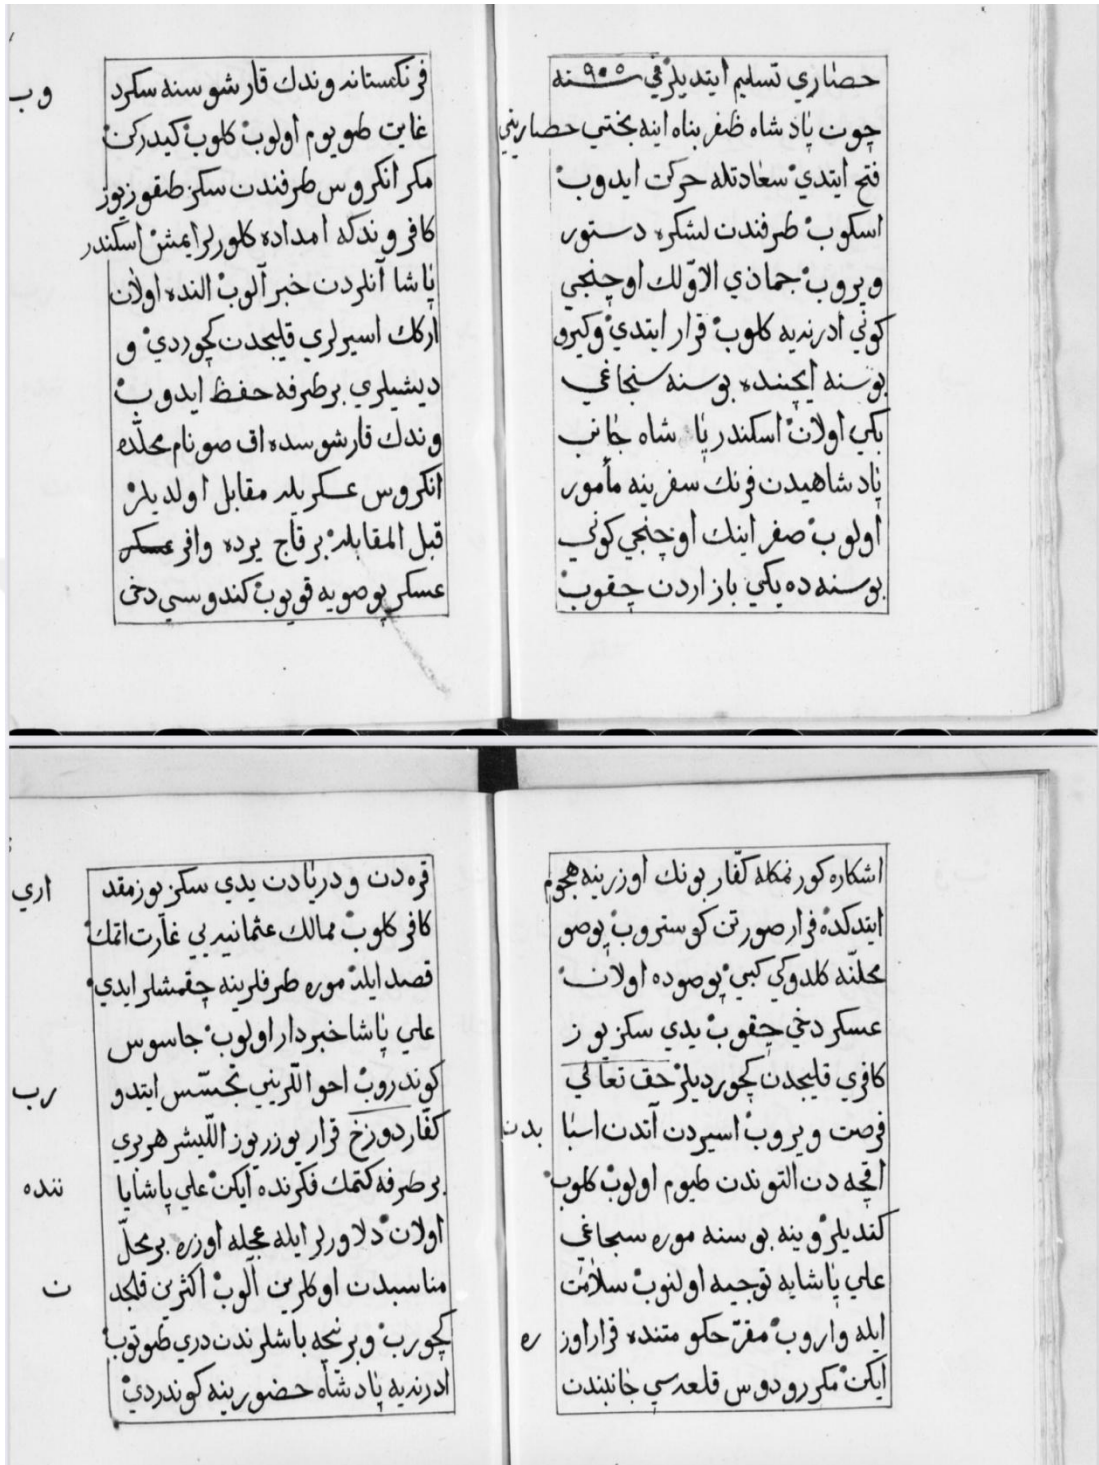 حصاري تسليم ايتديلر في سنه ٩٠٥
چون پادشاه ظفر پناه اينه بختي حصاريني
فتح ايتدي سعادتله حركت ايدوب
اسكوب طرفندن لشكره دستور
ويروب جماذي الاوّلك اوچنجي
كوني ادرنه‌يه كلوب قرار ايتدي وكيرو
بوسنه ايچنده بوسنه سنجاغي
بكي اولان اسكندر پاشاه جانب
پادشاهيدن فرنك سفرينه مأمور
اولوب صفر اينك اوچنجي كوني
بوسنه ده يكي بازاردن چقوب
فرنكستانه وندك قارشوسنه سكرد
غايت طويوم اولوب كلوب كيدركن
مكر انكروس طرفندن سكز طقوزيوز
كافر وندكه امداده كلورلرايمش اسكندر
پاشا آنلردن خبر آلوب النده اولان
اركك اسيرلري قليجدن كچوردي و
ديشيلري بر طرفه حفظ ايدوب
وندك قارشوسنده اق صونام محلّده
انكروس عسكريله مقابل اولديلر
قبل المقابله برقاچ يرده وافر عسكر
عسكر پوصويه قويوب كندوسي دخى
وب
اشكاره كورنمكله كفّار بونك اوزرينه هجوم
ايتدكده فرار صورتن كوستروب پوصو
محلنّه كلدوكي كبي پوصوده اولان
عسكر دخي چقوب يدي سكز يوز
كافري قليجدن كچورديلر حق تعالي
فرصت ويروب اسيردن آتدن اسبا بدن
اقچه دن التوندن طيوم اولوب كلوب
كنديلر وينه بوسنه موره سنجاغي
علي پاشايه توجيه اولنوب سلامت
ايله واروب مقرّ حكومتنده قرار اوز ره
ايكن مكر رودوس قلعه سي جانبندن
قره دن و دريادن يدي سكز يوز مقد اري
كافر كلوب ممالك عثمانيه يي غارت اتمك
قصد ايله موره طرفلرينه چقمشلر ايدي
علي پاشا خبردار اولوب جاسوس
كوندروب احواللريني تجسّس ايتدو
كفّار دوزخ قرار يوزر يوز اللّيشر هربري رب
بر طرفه كتمك فكرنده ايكن علي پاشا يا ننده
اولان دلاورلر ايله عجله اوزره بر محلّ
مناسبدن اوكلرين آلوب اكثرين قلجد ن
كچورب وبر نچه باشلرندن دري طوتوب
ادرنه‌يه پادشاه حضورينه كوندردي